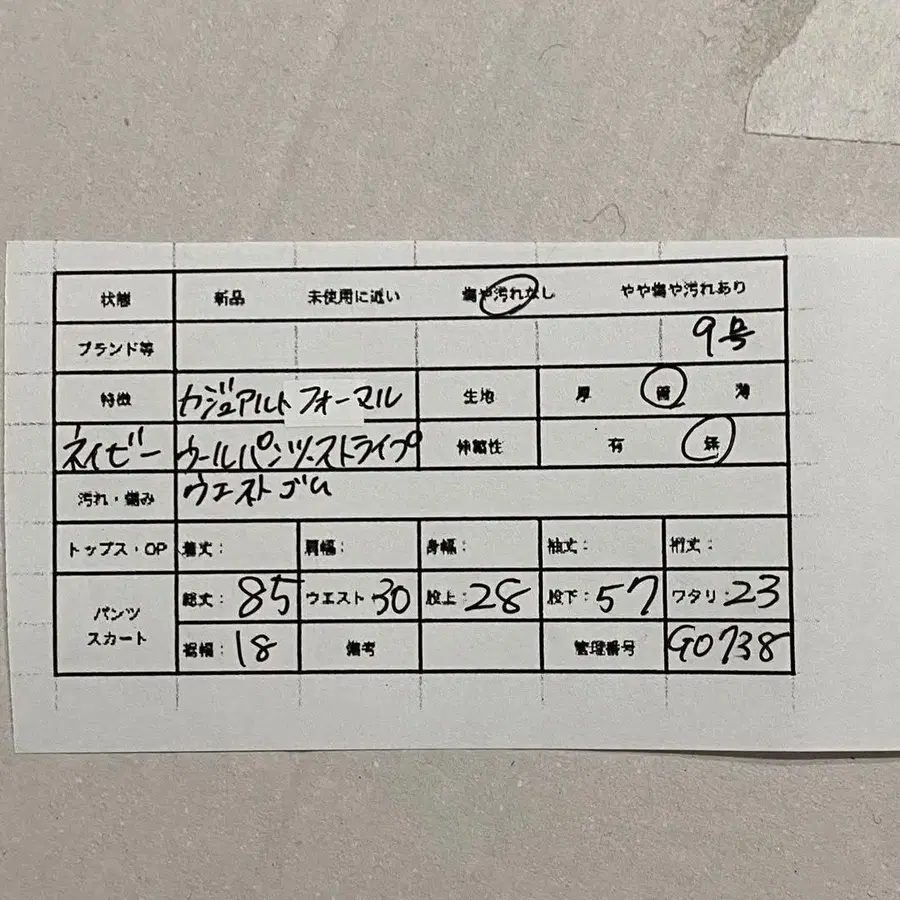 状態 新品 未使用に近い 傷や汚れなし やや傷や汚れあり
ブランド等 9号
特徴 カジュアルト フォーマル 生地 厚 普 薄
ネイビー ウールパンツ.ストライプ 伸縮性 有 無
汚れ・傷み ウエストゴム
トップス・OP 着丈: 肩幅: 身幅: 袖丈: 裄丈:
パンツ スカート 総丈: 85 ウエスト:30 股上:28 股下:57 ワタリ:23
裾幅:18 備考 管理番号 G0738